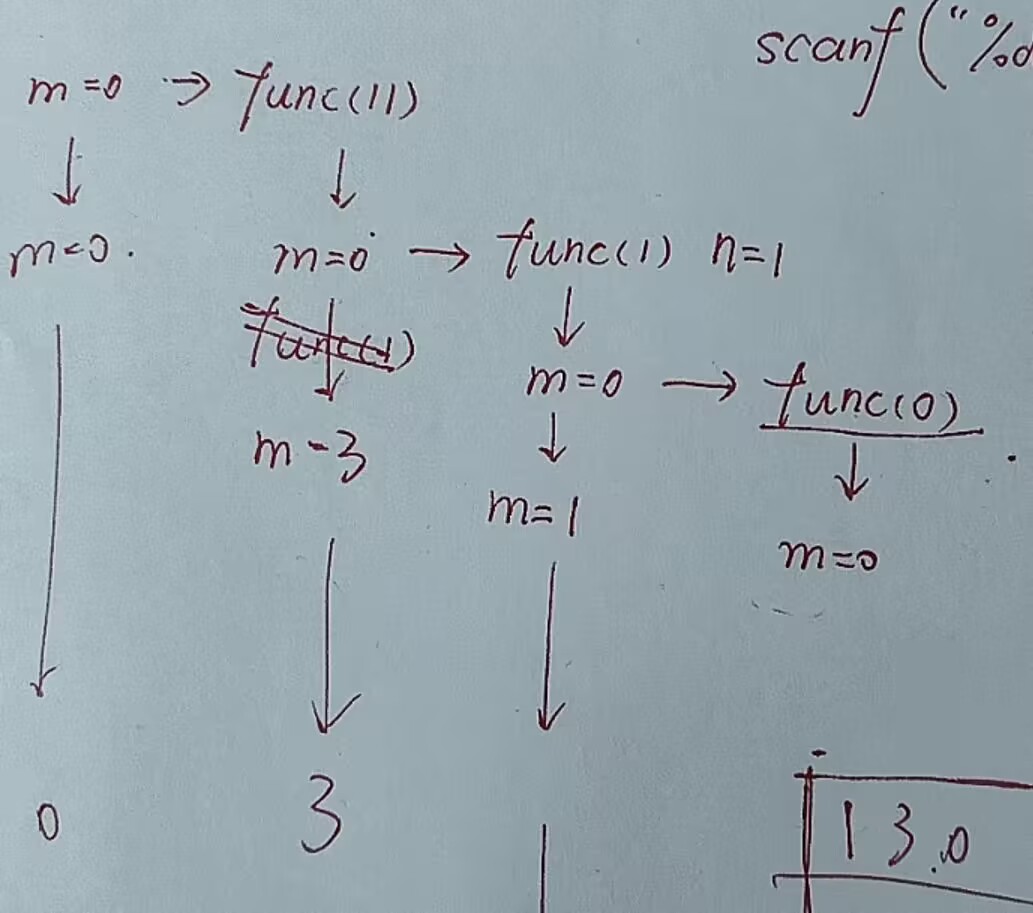 scanf("%d
m=0 → func(11)
↓ ↓
m<0. m=0 → func(1) n=1
func(1) ↓
↓ m=0 → func(0)
m-3 ↓ ↓
m=1 m=0
↓ ↓ ↓
0 3 1 13.0